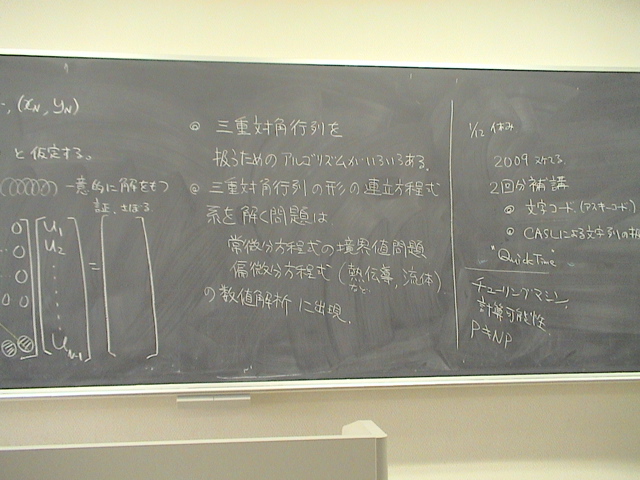 , (xN, yN)
と仮定する。
一意的に解をもつ
0] [u1
0 u2
0 =
0 0
uN-1
◎ 三重対角行列を
扱うためのアルゴリズムがいろいろある。
◎ 三重対角行列の形の連立方程式
系を解く問題は
常微分方程式の境界値問題
偏微分方程式 (熱伝導, 流体)
など
の数値解析に出現.
1/12 休み
2009
2回分補講
◎ 文字コード.(アスキーコード)
◎ CASLによる文字列の
チューリングマシン,
計算可能性
P≠NP